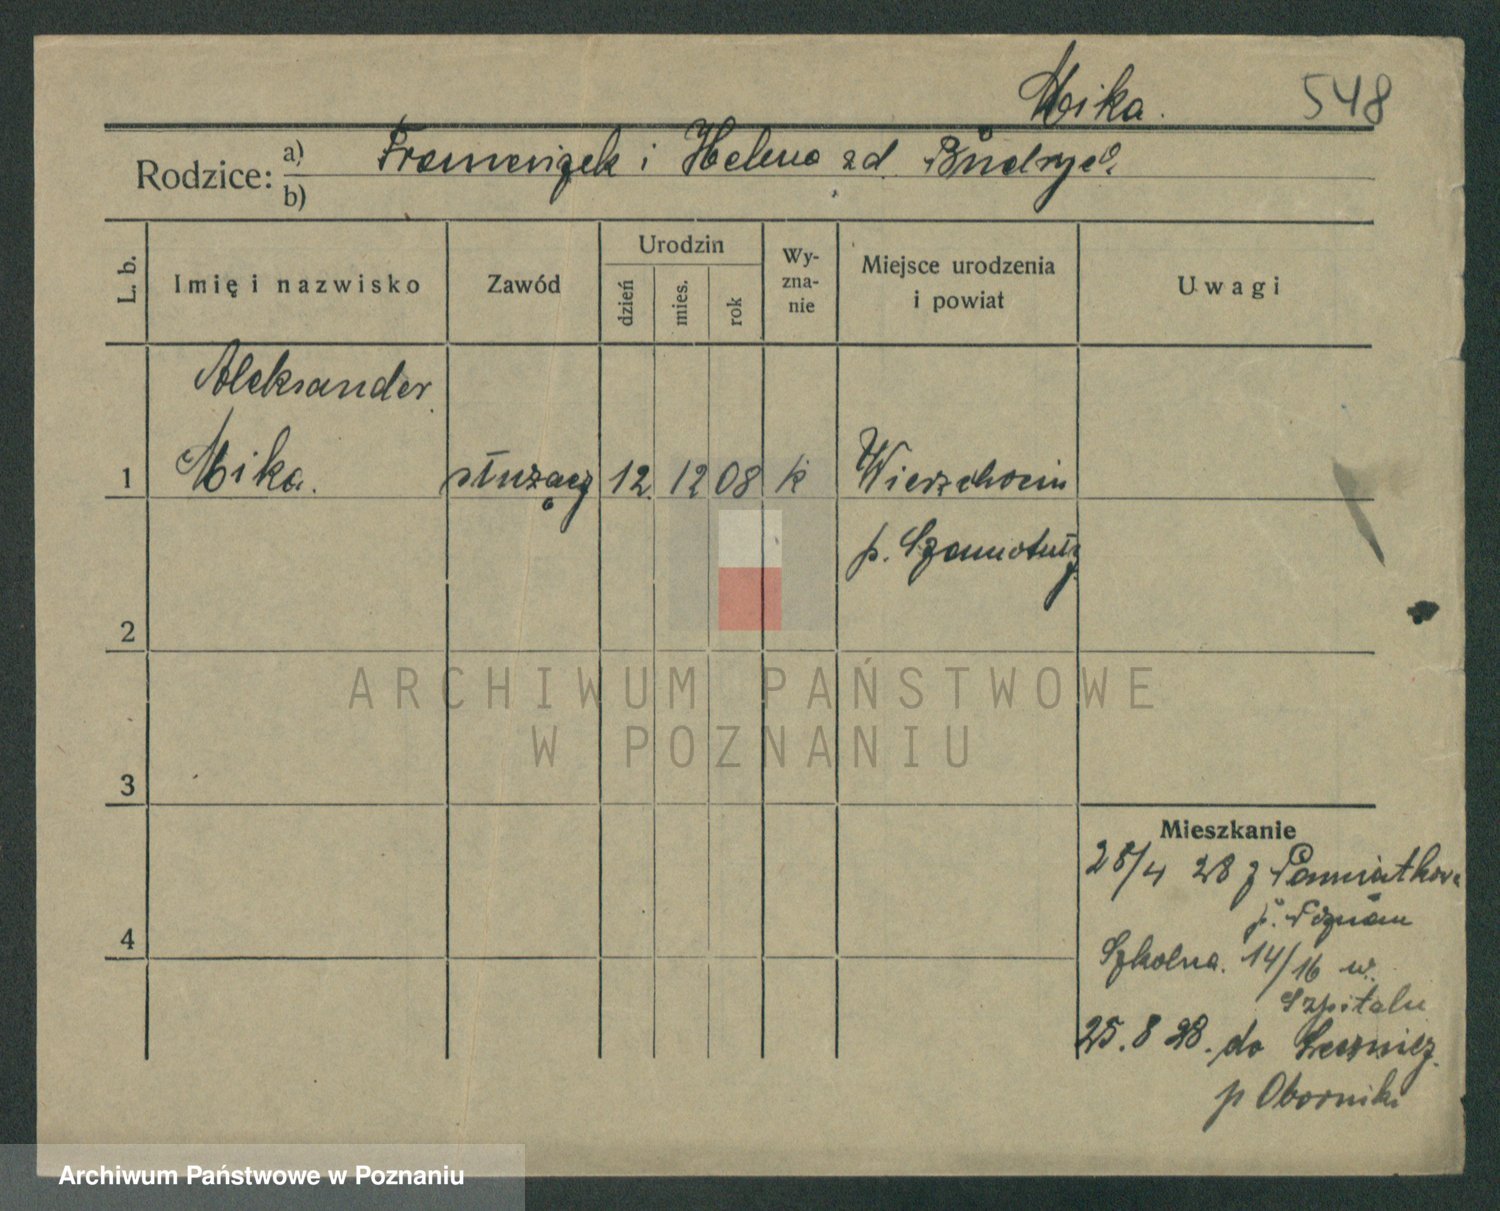 Mika. 548
Rodzice: a) Franciszek i Helena zd.
b)
L. b.
Imię i nazwisko
Zawód
Urodzin
dzień
mies.
rok
Wy-
zna-
nie
Miejsce urodzenia
i powiat
Uwagi
Aleksander
1 Mika. służący 12 12 08 k Wierzchocin
p. Szamotuły
2
3
4
ARCHIWUM PAŃSTWOWE
W POZNANIU
Mieszkanie
28/4 28 z
p. Poznań
Szkolna. 14/16 w.
Szpitalu
25. 8 28. do
p Oborniki
Archiwum Państwowe w Poznaniu